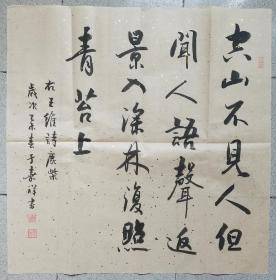 空山不見人但
聞人語聲返
景入深林復照
青苔上
右王維詩鹿柴
歲次未春于壽祥書